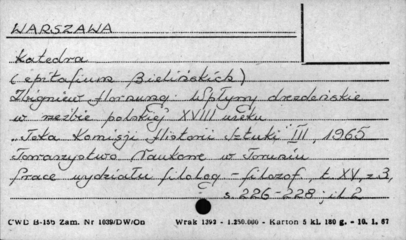 WARSZAWA
Katedra
(epitafium Bielińskich)
Zbigniew Hornung: Wpływy drezdeńskie
w rzeźbie polskiej XVIII wieku
"Teka Komisji Historii Sztuki" III, 1965
Towarzystwo Naukowe w Toruniu
Prace wydziału filolog-filozof., t. XV, z 3,
s. 226-228; il 2
CWD B-15b Zam. Nr 1039/DW/Oo Wrak 1392 - 1.250.000 - Karton 5 kl. 180 g. - 10. 1. 67